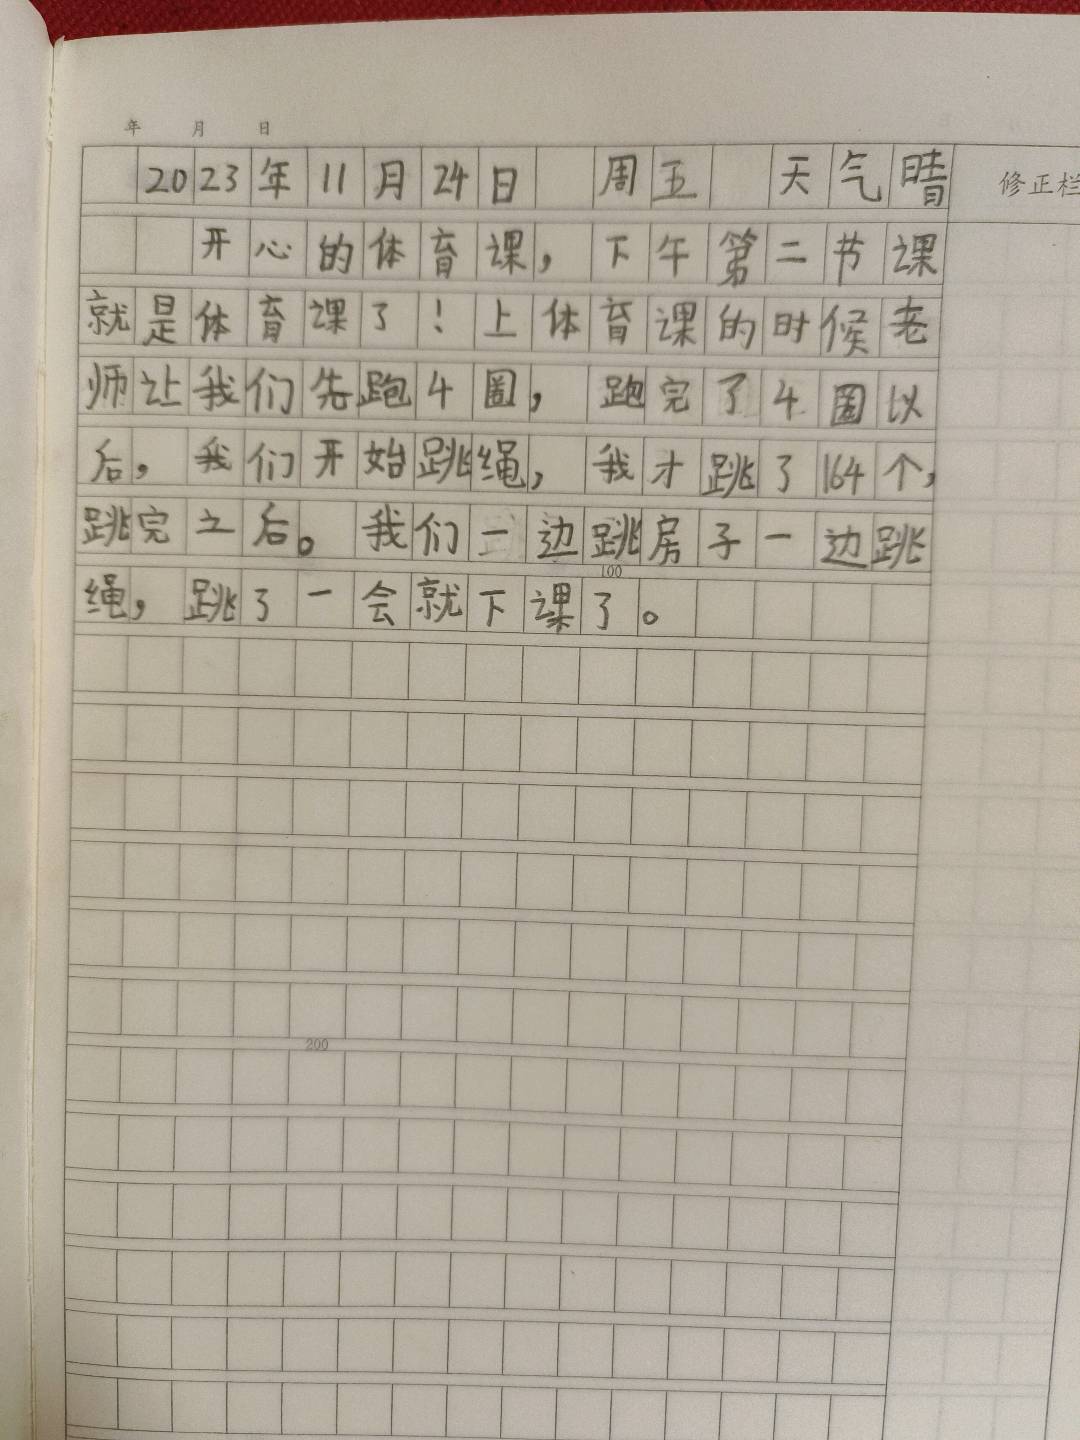 年 月 日
2023年11月24日 周五 天气晴
修正栏
开心的体育课，下午第二节课
就是体育课了！上体育课的时候老
师让我们先跑4圈，跑完了4圈以
后，我们开始跳绳，我才跳了164个，
跳完之后。我们一边跳房子一边跳
100
绳，跳了一会就下课了。
200